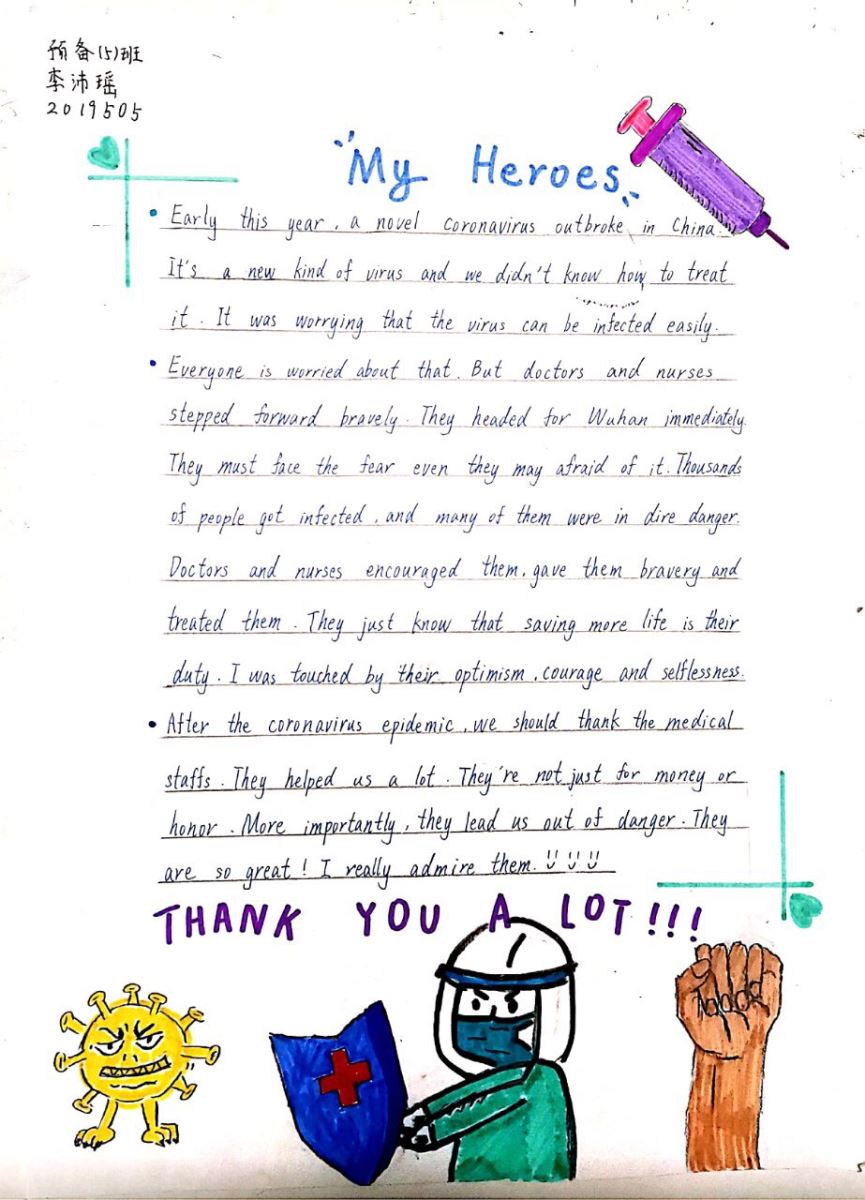 预备(5)班
李沛瑶
2019505
"My Heroes"
• Early this year, a novel coronavirus outbroke in China.
It's a new kind of virus and we didn't know how to treat
it. It was worrying that the virus can be infected easily.
• Everyone is worried about that. But doctors and nurses
stepped forward bravely. They headed for Wuhan immediately.
They must face the fear even they may afraid of it. Thousands
of people got infected, and many of them were in dire danger.
Doctors and nurses encouraged them, gave them bravery and
treated them. They just know that saving more life is their
duty. I was touched by their optimism, courage and selflessness.
• After the coronavirus epidemic, we should thank the medical
staffs. They helped us a lot. They're not just for money or
honor. More importantly, they lead us out of danger. They
are so great! I really admire them.
THANK YOU A LOT!!!